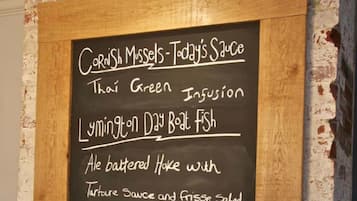 Cornish Mussels - Today's Sauce
Thai Green Infusion
Lymington Day Boat Fish
Ale battered Hake with
Tartare Sauce and Frisse Salad